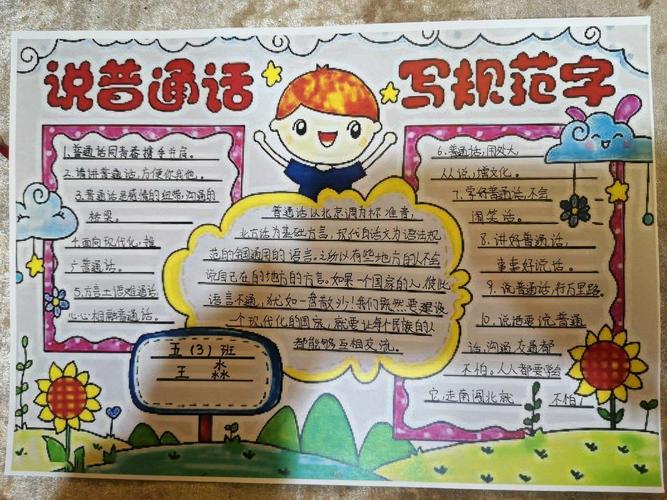 说普通话 写规范字
1.普通话同青春携手并肩。
2.请讲普通话,方便你我他。
3.普通话是感情的纽带,沟通的
桥梁。
4.面向现代化,推
广普通话。
5.方言土语难通话
心心相融普通话。
普通话以北京调为标准音,
北方话为基础方言,现代白话文为语法规
范的全国通用的语言。之所以有些地方的人不会
说自己在的地方的方言。如果一个国家的人,彼此
语言不通,犹如一盘散沙!我们既然要建设
一个现代化的国家,就要让每个民族的人
都能够互相交流。
五(3)班
王 淼
6.普通话,用处大
人人说,增文化。
7.学好普通话,不会
闹笑话。
8.讲好普通话,
事事好说话。
9.说普通话,行万里路
10.说话要说普通
话,沟通交通都
不怕。人人都要学会
它,走南闯北就 不怕!